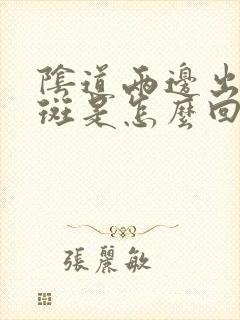 陰道兩邊出
斑是怎麼回
張麗敏